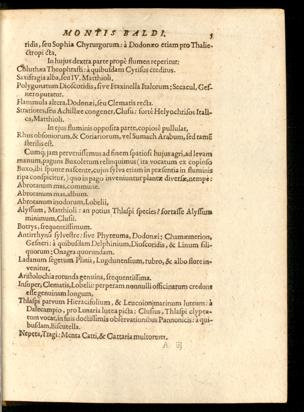 MONTIS BALDI. 5
ridis, seu Sophia Chyrurgorum: à Dodonæo etiam pro Thalie-
ctropi cta,
In hujus dextra parte propè flumen reperitur:
Colutea Theophrasti: à quibusdam Cytisus creditus.
Saxifragia alba, seu IV. Matthioli.
Polygonatum Dioscoridis, sive Fraxinella Italorum; Secacul, Ges-
nero putatur.
Flammula altera Dodonæi, seu Clematis recta.
Stratiotes, seu Achilleæ congener, Clusii: fortè Helyochrisos Itali-
ca, Matthioli.
In ejus fluminis opposita parte, copiosè pullulat,
Rhus obsoniorum, & Coriariorum, vel Sumach Arabum, sed tamē
sterilis est.
Cumq; jam pervenissemus ad finem spatiosi hujus agri, ad levam
manum, pagum Buxoletum relinquimus (ita vocatum ex copinso
Buxo, ibi sponte nascente, cujus sylva etiam in præsentia in fluminis
ripa conspicitur,) quo in pago inveniuntur plantæ diversæ, nempè:
Abrotanum mas, commune.
Abrotanum mas, album.
Abrotanum inodorum, Lobelii,
Alyssum, Matthioli: an potius Thlaspi species? fortasse Alyssum
minimum, Clusii.
Botrys, frequentissimum.
Antirrhynū sylvestre: sive Phyteuma, Dodonæi; Chamænerion,
Gesneri: à quibusdam Delphinium, Dioscoridis, & Linum sili-
quorum; Onagra quorundam.
Ladanum segetum Plinii, Lugdunensium, rubro, & albo flore in-
venitur.
Aristolochia rotunda genuina, frequentissima.
Insuper, Clematis, Lobelii: perperam nonnulli officinarum credunt
esse genuinum longum.
Thlaspi parvum Hieracifolium, & Leucoion marinum luteum: à
Dalecampio, pro Lunaria lutea picta: Clusius, Thlaspi clypea-
tum vocat, in suis doctissimis observationibus Pannonicis: à qui-
busdam, Biscutella.
Nepeta, Tragi: Menta Catti, & Cattaria multorum.